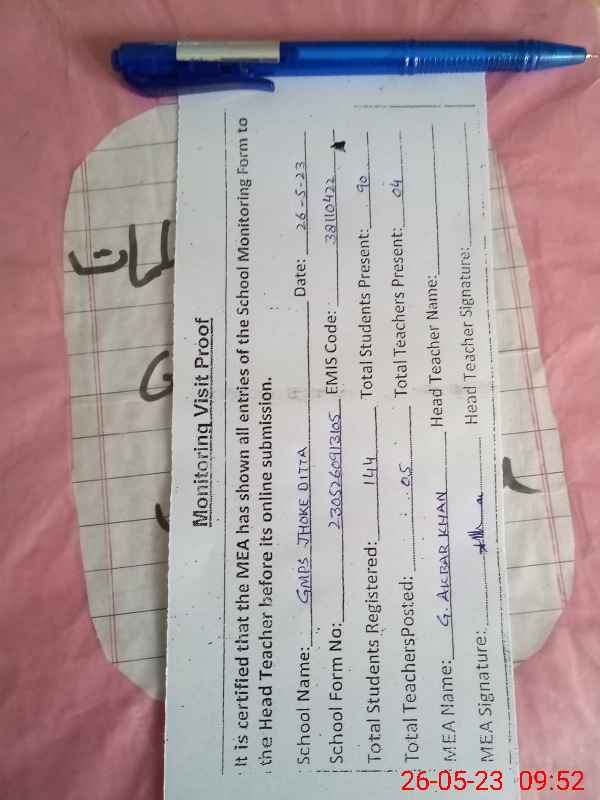 Monitoring Visit Proof
It is certified that the MEA has shown all entries of the School Monitoring Form to
the Head Teacher before its online submission.
School Name: GMPS JHOKE DITTA Date: 26-5-23
School Form No: 2305260913105 EMIS Code: 38110422
Total Students Registered: 144 Total Students Present: 90
Total TeachersPosted: 05 Total Teachers Present: 04
MEA Name: G. AKBAR KHAN Head Teacher Name:
MEA Signature: Head Teacher Signature:
26-05-23 09:52